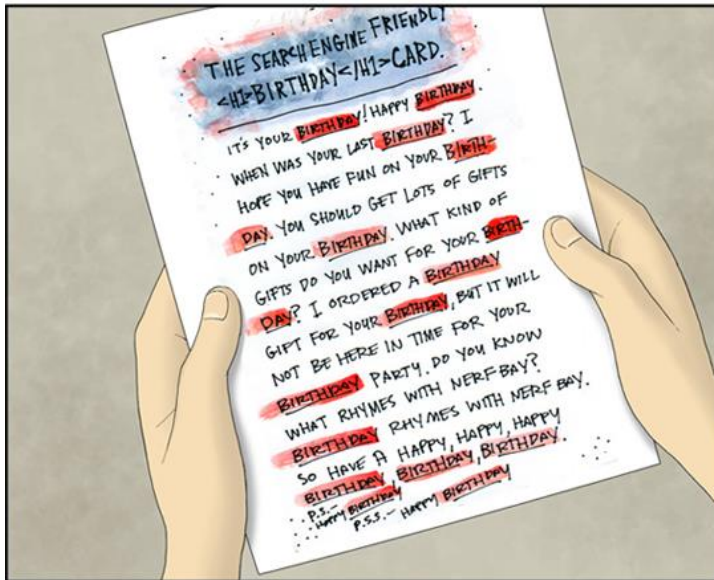 THE SEARCH ENGINE FRIENDLY
<H1>BIRTHDAY</H1> CARD.
IT'S YOUR BIRTHDAY! HAPPY BIRTHDAY.
WHEN WAS YOUR LAST BIRTHDAY? I
HOPE YOU HAVE FUN ON YOUR BIRTH-
DAY. YOU SHOULD GET LOTS OF GIFTS
ON YOUR BIRTHDAY. WHAT KIND OF
GIFTS DO YOU WANT FOR YOUR BIRTH-
DAY? I ORDERED A BIRTHDAY
GIFT FOR YOUR BIRTHDAY, BUT IT WILL
NOT BE HERE IN TIME FOR YOUR
BIRTHDAY PARTY. DO YOU KNOW
WHAT RHYMES WITH NERF BAY?
BIRTHDAY RHYMES WITH NERF BAY.
SO HAVE A HAPPY, HAPPY, HAPPY
BIRTHDAY, BIRTHDAY, BIRTHDAY.
P.S.-
HAPPY BIRTHDAY
P.S.S.- HAPPY BIRTHDAY